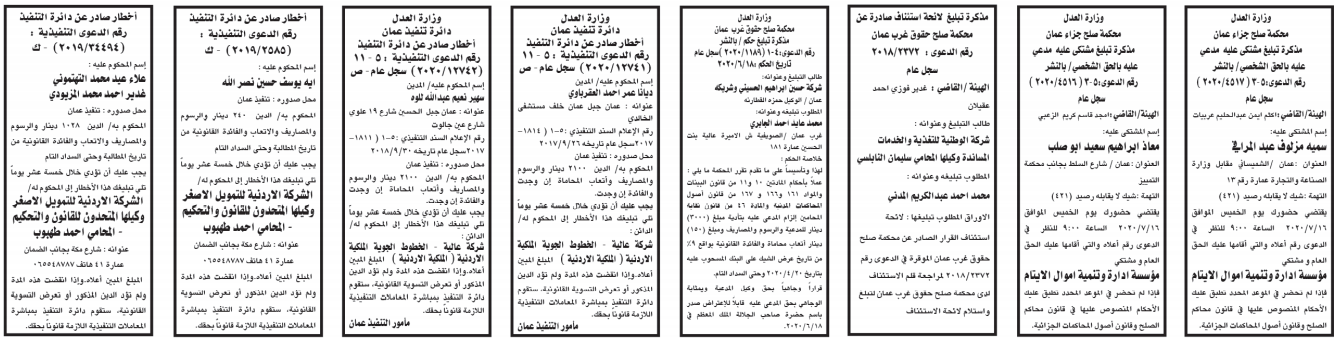 وزارة العدل
محكمة صلح جزاء عمان
مذكرة تبليغ مشتكى عليه مدعي
عليه بالحق الشخصي/ بالنشر
رقم الدعوى:٥-٣ (٢٠٢٠/٤٥١٧)
سجل عام
الهيئة/القاضي: اكلم ايمن عبدالحليم عربيات
إسم المشتكى عليه:
سميه مزلوف عبد المراني
العنوان: عمان /الشميساني مقابل وزارة
الصناعة والتجارة عمارة رقم ١٣
التهمة: شيك لا يقابله رصيد (٤٢١)
يقتضي حضورك يوم الخميس الموافق
٢٠٢٠/٧/١٦ الساعة ٩:٠٠ للنظر في
الدعوى رقم أعلاه والتي أقامها عليك الحق
العام و مشتكي
مؤسسة ادارة وتنمية اموال الايتام
فإذا لم تحضر في الموعد المحدد تطبق عليك
الأحكام المنصوص عليها في قانون محاكم
الصلح وقانون أصول المحاكمات الجزائية.
وزارة العدل
محكمة صلح جزاء عمان
مذكرة تبليغ مشتكى عليه مدعي
عليه بالحق الشخصي/ بالنشر
رقم الدعوى:٥-٣ (٢٠٢٠/٤٥١٦)
سجل عام
الهيئة/القاضي: امجد قاسم كريم الزعبي
إسم المشتكى عليه:
معاذ ابراهيم سعيد ابو صلب
العنوان: عمان / شارع السلط بجانب محكمة
التمييز
التهمة: شيك لا يقابله رصيد (٤٢١)
يقتضي حضورك يوم الخميس الموافق
٢٠٢٠/٧/١٦ الساعة ٩:٠٠ للنظر في
الدعوى رقم أعلاه والتي أقامها عليك الحق
العام و مشتكي
مؤسسة ادارة وتنمية اموال الايتام
فإذا لم تحضر في الموعد المحدد تطبق عليك
الأحكام المنصوص عليها في قانون محاكم
الصلح وقانون أصول المحاكمات الجزائية.
مذكرة تبليغ لائحة استئناف صادرة عن
محكمة صلح حقوق غرب عمان
رقم الدعوى : ٢٠١٨/٢٣٧٢
سجل عام
الهيئة / القاضي : غدير فوزي احمد
عقيلان
طالب التبليغ وعنوانه :
شركة الوطنية للتغذية والخدمات
المساندة وكيلها المحامي سليمان النابلسي
المطلوب تبليغه وعنوانه :
محمد احمد عبدالكريم المدني
الاوراق المطلوب تبليغها : لائحة
استئناف القرار الصادر عن محكمة صلح
حقوق غرب عمان الموقرة في الدعوى رقم
٢٠١٨/٢٣٧٢ لمراجعة قلم الاستئناف
لدى محكمة صلح حقوق غرب عمان لتبلغ
واستلام لائحة الاستئناف
وزارة العدل
محكمة صلح حقوق غرب عمان
مذكرة تبليغ حكم / بالنشر
رقم الدعوى:٤-١ (٢٠٢٠/١١٨٩) سجل عام
تاريخ الحكم :٢٠٢٠/٦/١٨
طالب التبليغ وعنوانه:
شركة حسين ابراهيم الحسيني وشريكه
عمان / الوكيل حمزه القطارنه
المطلوب تبليغه وعنوانه:
محمد عايد احمد الجابري
غرب عمان /الصويفية ش الاميرة عالية بنت
الحسين عمارة ١٨١
خلاصة الحكم :
لهذا وتأسيساً على ما تقدم تقرر المحكمة ما يلي :
عملاً بأحكام المادتين ١٠ و١١ من قانون البينات
والمواد ١٦١ و١٦٦ و ١٦٧ من قانون أصول
المحاكمات المدنية والمادة ٤٦ من قانون نقابة
المحامين إلزام المدعى عليه بتأدية مبلغ (٣٠٠٠)
دينار للمدعية والرسوم والمصاريف ومبلغ (١٥٠)
دينار أتعاب محاماة والفائدة القانونية بواقع ٩٪
من تاريخ عرض الشيك على البنك المسحوب عليه
بتاريخ ٢٠٢٠/٤/٢٠ وحتى السداد التام.
قراراً وجاهياً بحق وكيل المدعية وبمثابة
الوجاهي بحق المدعى عليه قابلاً للاعتراض صدر
باسم حضرة صاحب الجلالة الملك المعظم في
٢٠٢٠/٦/١٨.
وزارة العدل
دائرة تنفيذ عمان
أخطار صادر عن دائرة التنفيذ
رقم الدعوى التنفيذية : ٥ - ١١
(٢٠٢٠/١٢٧٤١) سجل عام- ص
إسم المحكوم عليه/ المدين:
ديانا عمر احمد العقرباوي
عنوانه : عمان جبل عمان خلف مستشفى
الخالدي
رقم الإعلام السند التنفيذي :٥-١ (١٨١٤)-
٢٠١٧سجل عام تاريخه ٢٠١٧/٩/٢٦
محل صدوره : تنفيذ عمان
المحكوم به/ الدين ٢١٠٠ دينار والرسوم
والمصاريف وأتعاب المحاماة إن وجدت
والفائدة إن وجدت.
يجب عليك أن تؤدي خلال خمسة عشر يوماً
تلي تبليغك هذا الأخطار إلى المحكوم له/
الدائن :
شركة عالية - الخطوط الجوية الملكية
الاردنية ( الملكية الاردنية ) المبلغ المبين
أعلاه. وإذا انقضت هذه المدة ولم تؤد الدين
المذكور أو تعرض التسوية القانونية، ستقوم
دائرة التنفيذ بمباشرة المعاملات التنفيذية
اللازمة قانوناً بحقك.
مأمور التنفيذ عمان
وزارة العدل
دائرة تنفيذ عمان
أخطار صادر عن دائرة التنفيذ
رقم الدعوى التنفيذية : ٥ - ١١
(٢٠٢٠/١٢٧٤٢) سجل عام- ص
إسم المحكوم عليه/ المدين
سهير نعيم عبدالله للوه
عنوانه : عمان جبل الحسين شارع ١٩ علوي
شارع عين جالوت
رقم الإعلام السند التنفيذي :٥-١ (١٨١١)-
٢٠١٧سجل عام تاريخه ٢٠١٨/٩/٣٠
محل صدوره : تنفيذ عمان
المحكوم به/ الدين ٢١٠٠ دينار والرسوم
والمصاريف وأتعاب المحاماة إن وجدت
والفائدة إن وجدت.
يجب عليك أن تؤدي خلال خمسة عشر يوماً
تلي تبليغك هذا الأخطار إلى المحكوم له/
الدائن :
شركة عالية - الخطوط الجوية الملكية
الاردنية ( الملكية الاردنية ) المبلغ المبين
أعلاه. وإذا انقضت هذه المدة ولم تؤد الدين
المذكور أو تعرض التسوية القانونية، ستقوم
دائرة التنفيذ بمباشرة المعاملات التنفيذية
اللازمة قانوناً بحقك.
مأمور التنفيذ عمان
أخطار صادر عن دائرة التنفيذ
رقم الدعوى التنفيذية :
(٢٠١٩/٢٥٨٥) - ك
إسم المحكوم عليه :
ايه يوسف حسين نصر الله
محل صدوره : تنفيذ عمان
المحكوم به/ الدين ٢٤٠ دينار والرسوم
والمصاريف والاتعاب والفائدة القانونية من
تاريخ المطالبة وحتى السداد التام
يجب عليك أن تؤدي خلال خمسة عشر يوماً
تلي تبليغك هذا الأخطار إلى المحكوم له/
الشركة الاردنية للتمويل الاصغر
وكيلها المتحدون للقانون والتحكيم
- المحامي احمد طهبوب
عنوانه : شارع مكة بجانب الضمان
عمارة ٤١ هاتف ٠٦٥٥٤٨٧٨٧
المبلغ المبين أعلاه.وإذا انقضت هذه المدة
ولم تؤد الدين المذكور أو تعرض التسوية
القانونية، ستقوم دائرة التنفيذ بمباشرة
المعاملات التنفيذية اللازمة قانوناً بحقك.
أخطار صادر عن دائرة التنفيذ
رقم الدعوى التنفيذية :
(٢٠١٩/٣٤٤٩٤) - ك
إسم المحكوم عليه :
علاء عبد محمد التهتموني
غدير احمد محمد المزيودي
محل صدوره : تنفيذ عمان
المحكوم به/ الدين ١٠٢٨ دينار والرسوم
والمصاريف والاتعاب والفائدة القانونية من
تاريخ المطالبة وحتى السداد التام
يجب عليك أن تؤدي خلال خمسة عشر يوماً
تلي تبليغك هذا الأخطار إلى المحكوم له/
الشركة الاردنية للتمويل الاصغر
وكيلها المتحدون للقانون والتحكيم
- المحامي احمد طهبوب
عنوانه : شارع مكة بجانب الضمان
عمارة ٤١ هاتف ٠٦٥٥٤٨٧٨٧
المبلغ المبين أعلاه.وإذا انقضت هذه المدة
ولم تؤد الدين المذكور أو تعرض التسوية
القانونية، ستقوم دائرة التنفيذ بمباشرة
المعاملات التنفيذية اللازمة قانوناً بحقك.